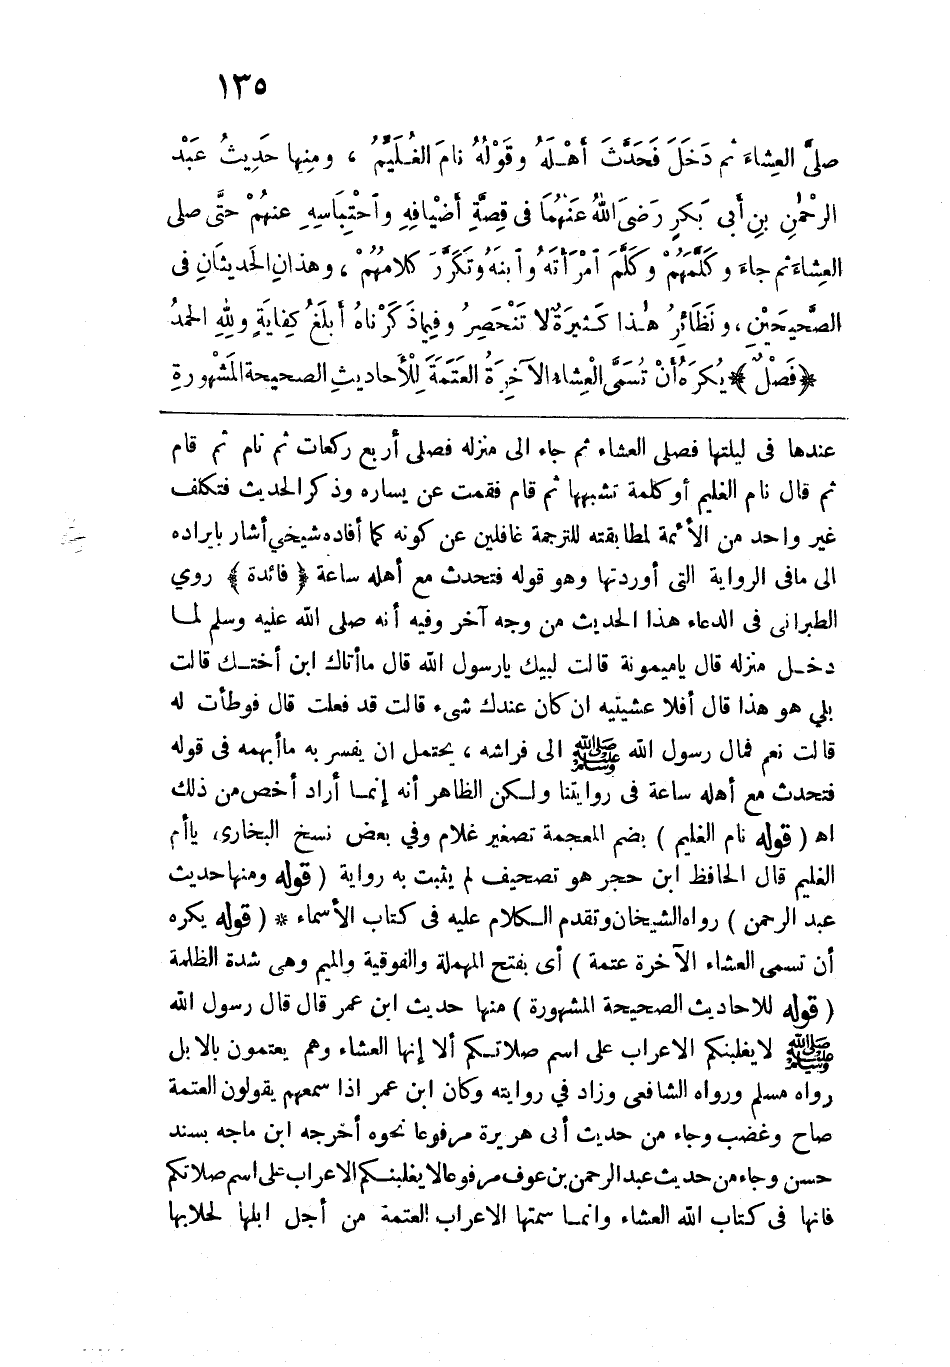 ١٣٥
صلىَّ العِشاءَ ثم دَخَلَ فَحَدَّثَ أَهْـلَهُ وقَوْلُهُ نامَ الغُـلَيِّمُ ، ومنِها حَدِيثُ عَبْدِ
الرحْمٰنِ بنِ أَبى بَكرٍ رَضىَ اللهُ عَنْهُمَا فى قِصَّةِ أَضْيافِهِ وٱحْتِبَاسِهِ عنهُمْ حتَّى صلى
العِشاءَ ثم جاءَ وكلَّمَهُمْ وكلَّمَ ٱمْرَأَتَهُ وٱبنهُ وتكَرَّرَ كلامهُمْ ، وهذانِ الحَديثانِ فى
الصَّحِيحَيْنِ ، ونَظَائِرُ هٰـذا كَـثِيرَةٌ لا تَنْحَصِرُ وفيماذَكَرْناهُ أَبلَغُ كِفايَةٍ ولِلهِ الحمدُ
﴿فَصْلٌ﴾ يُكرَهُ أَنْ تُسَمَّى الْعِشاءُ الآخِرَةُ العَتَمَةَ لِلْأَحاديثِ الصحيحة المَشْهُورةِ
عندها فى ليلتها فصلى العشاء ثم جاء الى منزله فصلى أربع ركعات ثم نام ثم قام
ثم قال نام الغليم أو كلمة تشبهها ثم قام فقمت عن يساره وذكر الحديث فتكلف
غير واحد من الأئمة لمطابقته للترجمة غافلين عن كونه كما أفاده شيخي أشار بايراده
الى مافى الرواية التى أوردتها وهو قوله فتحدث مع أهله ساعة ﴿ فائدة ﴾ روي
الطبرانى فى الدعاء هذا الحديث من وجه آخر وفيه أنه صلى الله عليه وسلم لمـا
دخـل منزله قال ياميمونة قالت لبيك يارسول الله قال ماأتاك ابن أختـك قالت
بلي هو هذا قال أفلا عشيتيه ان كان عندك شىء قالت قد فعلت قال فوطأت له
قالت نعم فمال رسول الله ﷺ الى فراشه ، يحتمل ان يفسر به ماأبهمه فى قوله
فتحدث مع أهله ساعة فى روايتنا ولـكن الظاهر أنه إنمـا أراد أخص من ذلك
اه ( قوله نام الغليم ) بضم المعجمة تصغير غلام وفي بعض نسخ البخارى ياأم
الغليم قال الحافظ ابن حجر هو تصحيف لم يثبت به رواية ( قوله ومنها حديث
عبد الرحمن ) رواه الشيخان وتقدم الـكلام عليه فى كتاب الأسماء * ( قوله يكره
أن تسمى العشاء الآخرة عتمة ) أى بفتح المهملة والفوقية والميم وهى شدة الظلمة
( قوله للاحاديث الصحيحة المشهورة ) منها حديث ابن عمر قال قال رسول الله
ﷺ لايغلبنكم الاعراب على اسم صلاتـكم ألا إنها العشاء وهم يعتمون بالابل
رواه مسلم ورواه الشافعى وزاد في روايته وكان ابن عمر اذا سمعهم يقولون العتمة
صاح وغضب وجاء من حديث أبى هريرة مرفوعا نحوه أخرجه ابن ماجه بسند
حسن وجاء من حديث عبد الرحمن بن عوف مرفوعا لايغلبنـكم الاعراب على اسم صلاتكم
فانها فى كتاب الله العشاء وانمـا سمتها الاعراب العتمة من أجل ابلها لحلابها